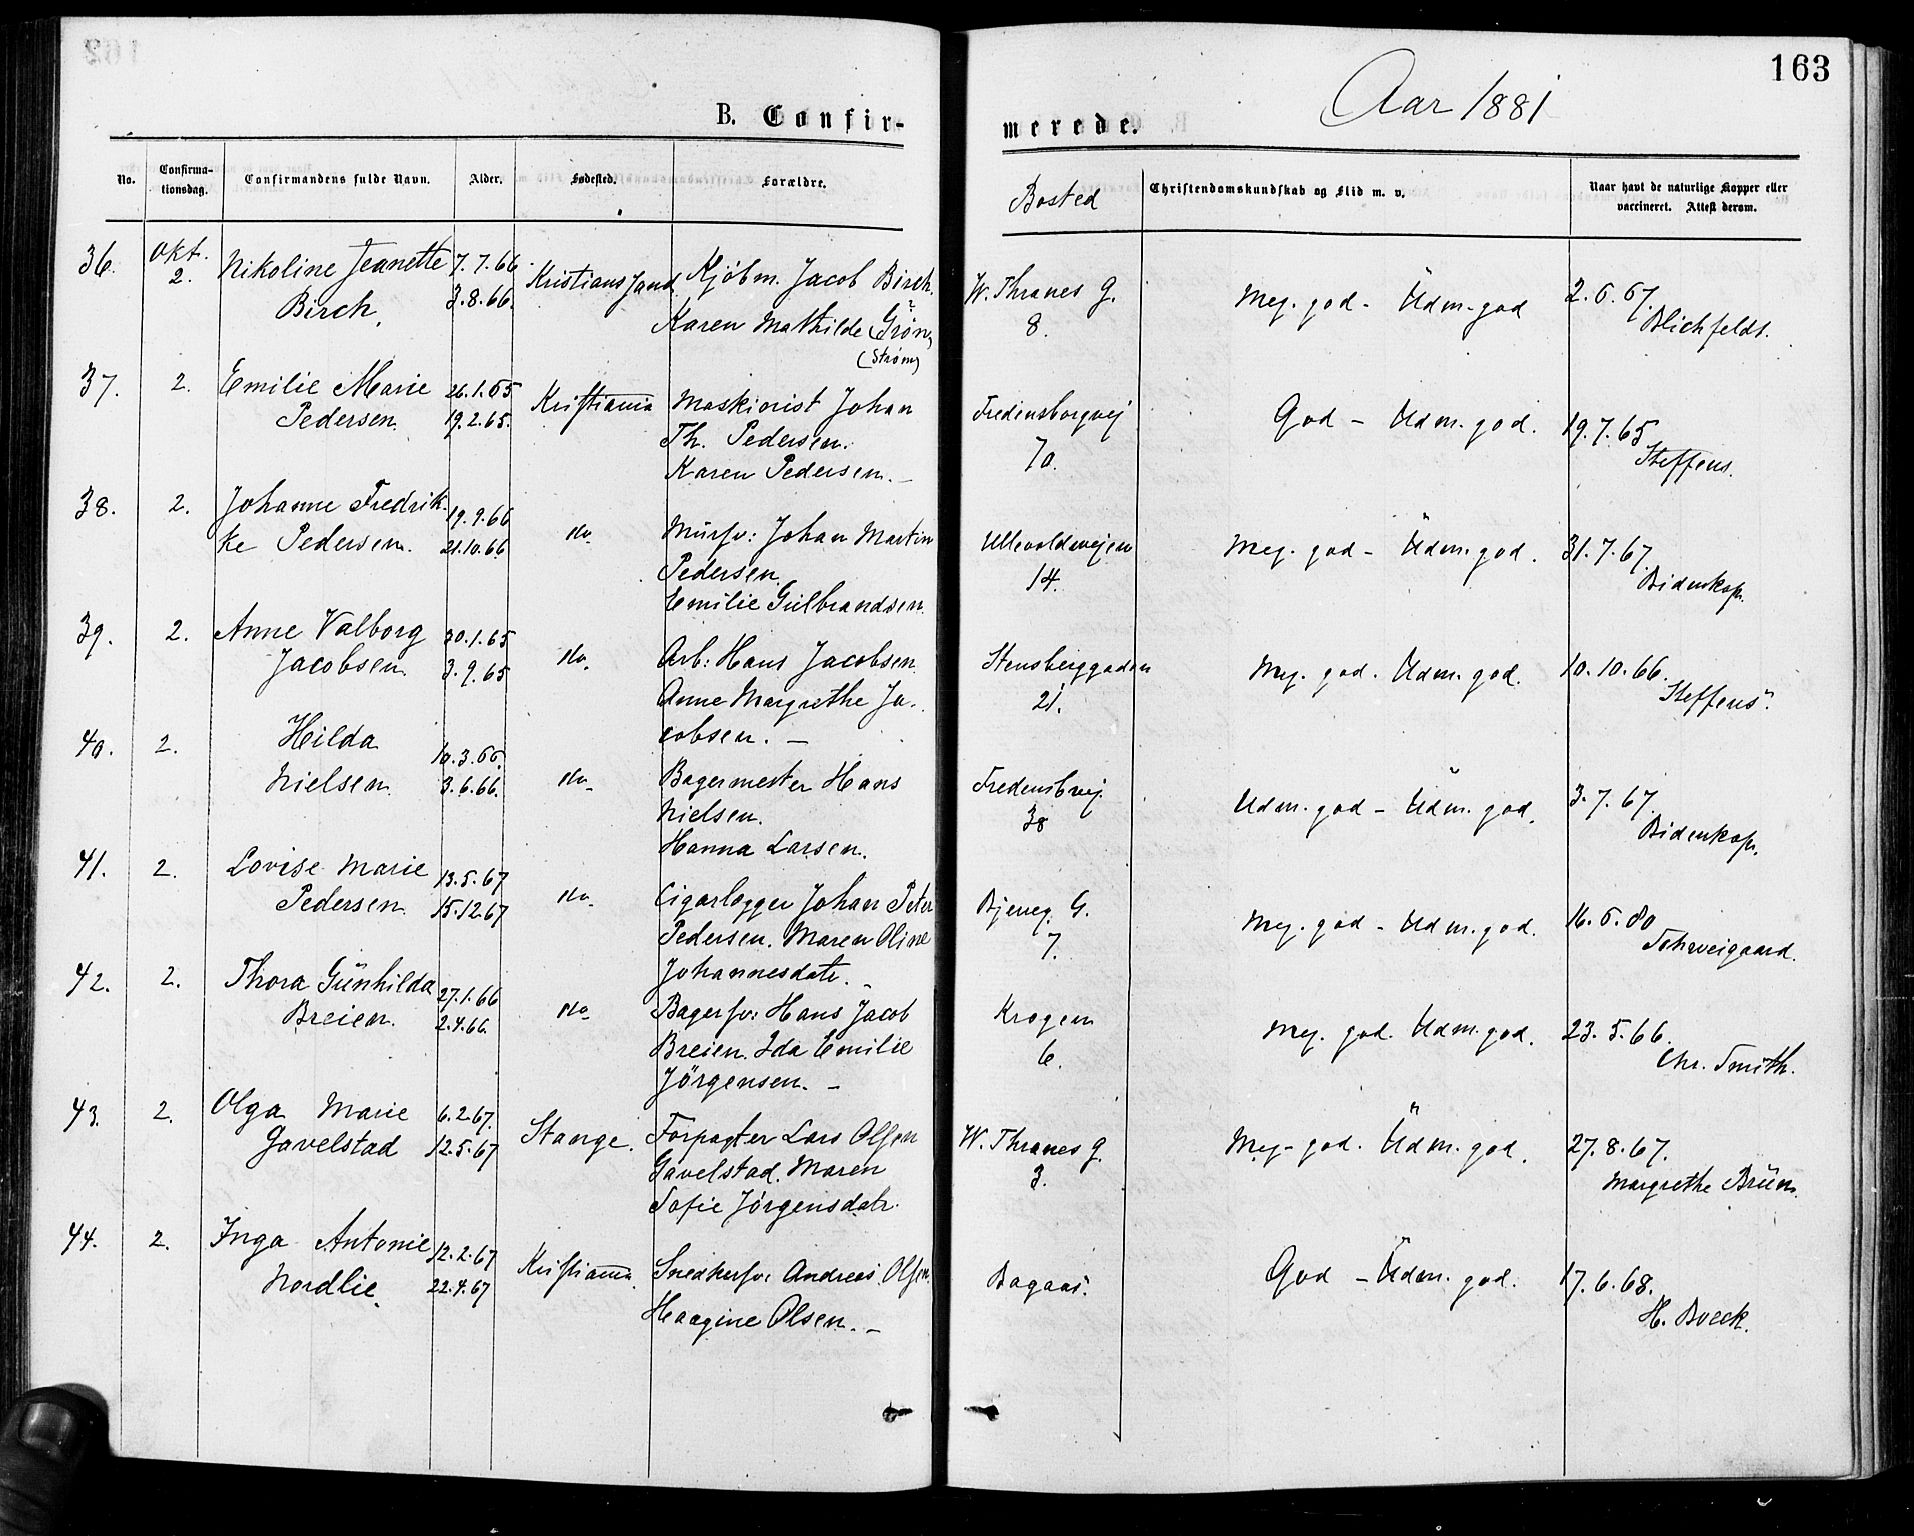 163
Aar 1881
B. Confir-
merede.
No.
Confirma-
tionsdag.
Confirmandens fulde Navn.
Alder.
Fødested.
Forældre.
Bosted
Christendomskundskab og Flid m. v.
Naar havt de naturlige Kopper eller
vaccineret. Attest derom.
36. Okt. 2. Nikoline Jeanette 7.7.66 Kristianssand Kjöbm. Jacob Birch. W. Thranes G. Meg. god - Udm. god 2.6.67.
Birch. 3.8.66. Karen Mathilde (Grøn) 8. Blichfeldt.
(Strøm)
37. 2. Emilie Marie 26.1.65 Kristiania Maskinist Johan Fredensborgvej God - Udm. god. 19.7.65
Pedersen. 19.2.65. Th. Pedersen. 70. Steffens.
Karen Pedersen. -
38. 2. Johanne Fredrik- 19.9.66 do. Mursv: Johan Martin Ullevoldsvejen Meg. god - Udm. god. 31.7.67.
ke Pedersen. 21.10.66 Pedersen. 14. Bidenkap.
Emilie Gulbrandsen.
39. 2. Anne Valborg 30.1.65 do. Arb: Hans Jacobsen Stensberggaden Meg. god. Udm. god. 10.10.66.
Jacobsen. 3.9.65 Anne Margrethe Ja- 21. Steffens.
cobsen. -
40. 2. Hilda 10.3.66. do. Bagermester Hans Fredensb.vej. Udm. god - Udm. god. 3.7.67.
Nielsen. 3.6.66. Nielsen. 38 Bidenkap.
Hanna Larsen.
41. 2. Lovise Marie 13.5.67 do. Cigarlægger Johan Peter Bjereg. G. Meg. god - Udm. god. 16.6.80
Pedersen. 15.12.67 Pedersen. Maren Oline 7. Schweigaard.
Johannesdatr. -
42. 2. Thora Gunhilda 27.1.66 do. Bagersv: Hans Jacob Krogen Meg. god. Udm. god. 23.5.66.
Breien. 2.4.66. Breien. Ida Emilie 6. Chr. Smith.
Jörgensen. -
43. 2. Olga Marie 6.2.67. Stange. Forpagter Lars Olsen W. Thranes g. Meg. god. Udm. god. 27.8.67.
Gavelstad 12.5.67 Gavelstad. Maren 3. Margrethe Bruun.
Sofie Jörgensdatr.
44. 2. Inga Antonie 12.2.67 Kristiania. Snedkersv: Andreas Olsen. Bagaas. God - Udm. god. 17.6.68.
Nordlie. 22.4.67 Haagine Olsen. - H. Boeck.